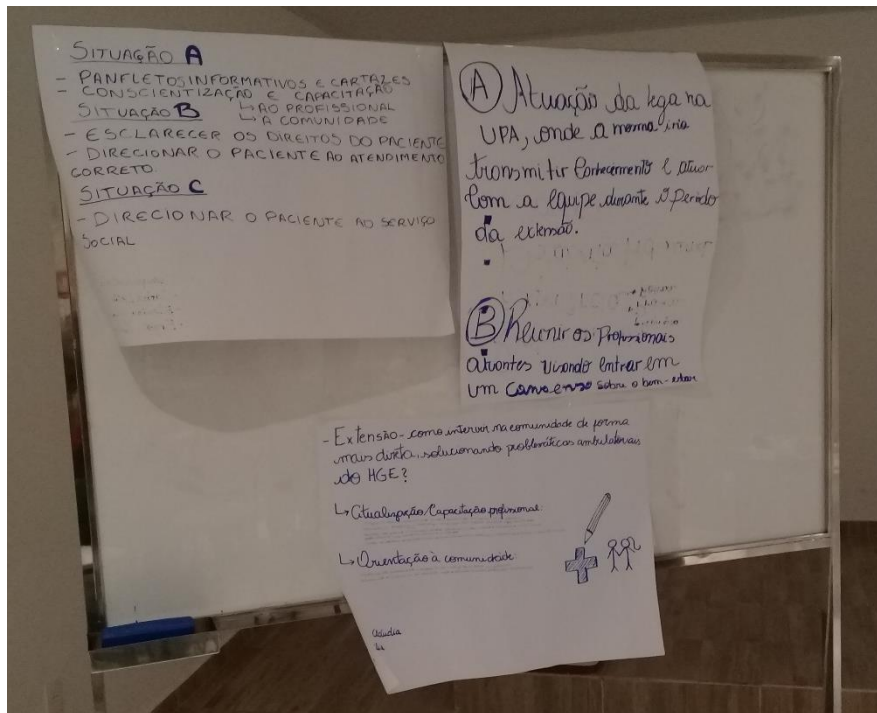 SITUAÇÃO A
- PANFLETOS INFORMATIVOS E CARTAZES
- CONSCIENTIZAÇÃO E CAPACITAÇÃO
↳ AO PROFISSIONAL
↳ A COMUNIDADE
SITUAÇÃO B
- ESCLARECER OS DIREITOS DO PACIENTE
- DIRECIONAR O PACIENTE AO ATENDIMENTO
CORRETO.
SITUAÇÃO C
- DIRECIONAR O PACIENTE AO SERVIÇO
SOCIAL
A Atuação da liga na
UPA, onde a mesma iria
transmitir conhecimento e atuar
com a equipe durante o período
da extensão.
B Reunir os Profissionais
atuantes visando entrar em
um consenso sobre o bem-estar
- Extensão - como intervir na comunidade de forma
mais direta, solucionando problemáticas ambulatoriais
do HGE?
↳ Atualização/Capacitação profissional.
↳ Orientação à comunidade.